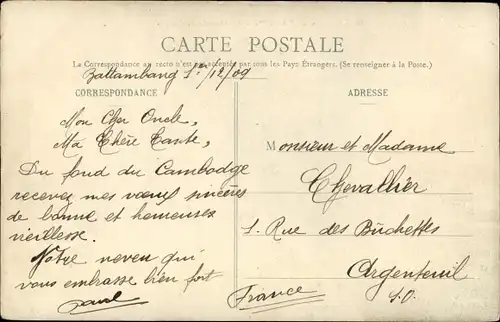 CARTE POSTALE
La Correspondance au recto n'est pas acceptée par tous les Pays Étrangers. (Se renseigner à la Poste.)
Battambang 1er/12/09
CORRESPONDANCE
Mon Cher Oncle,
Ma Chère Tante,
Du fond du Cambodge
recevez mes vœux sincères
de bonne et heureuses
vieillesse.
Votre neveu qui
vous embrasse bien fort
Paul
ADRESSE
Monsieur et Madame
Chevallier
1. Rue des Bûchettes
Argenteuil
S.O.
France